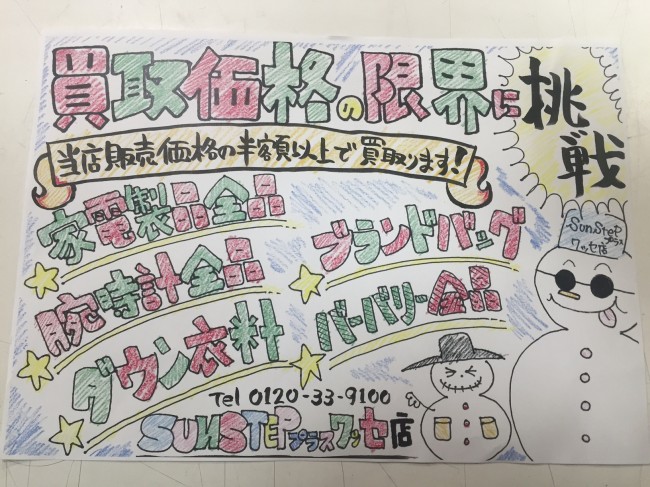 買取価格の限界に挑戦
当店販売価格の半額以上で買取ります!
家電製品全品
腕時計全品
ダウン衣料
ブランドバッグ
バーバリー全品
Tel 0120-33-9100
SUNSTEPプラスワッセ店
SunStep
プラス
ワッセ店